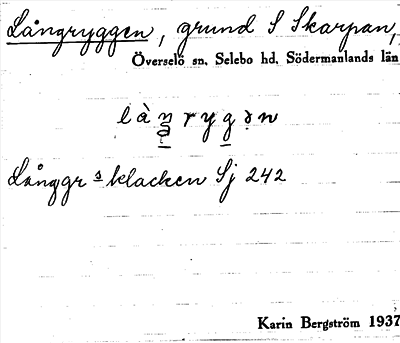 Långryggen, grund S Skarpan,
Överselö sn. Selebo hd. Södermanlands län
làŋrygən
Långgrsklacken Sj 242
Karin Bergström 1937